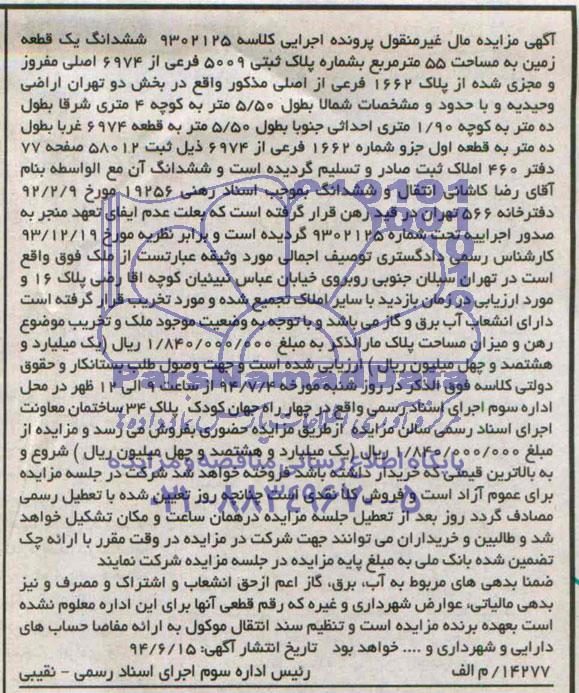 آگهی مزایده مال غیرمنقول پرونده اجرایی کلاسه ۹۳۰۲۱۲۵ ششدانگ یک قطعه
زمین به مساحت ۵۵ مترمربع بشماره پلاک ثبتی ۵۰۰۹ فرعی از ۶۹۷۴ اصلی مفروز
و مجزی شده از پلاک ۱۶۶۲ فرعی از اصلی مذکور واقع در بخش دو تهران اراضی
وحیدیه و با حدود و مشخصات شمالا بطول ۵/۵۰ متر به کوچه ۴ متری شرقا بطول
ده متر به کوچه ۱/۹۰ متری احداثی جنوبا بطول ۵/۵۰ متر به قطعه ۶۹۷۴ غربا بطول
ده متر به قطعه اول جزو شماره ۱۶۶۲ فرعی از ۶۹۷۴ ذیل ثبت ۵۸۰۱۲ صفحه ۷۷
دفتر ۴۶۰ املاک ثبت صادر و تسلیم گردیده است و ششدانگ آن مع الواسطه بنام
آقای رضا کاشانی انتقال و ششدانگ بموجب اسناد رهنی ۱۹۲۵۶ مورخ ۹۲/۲/۹
دفترخانه ۵۶۶ تهران در قید رهن قرار گرفته است که بعلت عدم ایفای تعهد منجر به
صدور اجراییه تحت شماره ۹۳۰۲۱۲۵ گردیده است و برابر نظریه مورخ ۹۳/۱۲/۱۹
کارشناس رسمی دادگستری توصیف اجمالی مورد وثیقه عبارتست از ملک فوق واقع
است در تهران سبلان جنوبی روبروی خیابان عباس نبیئیان کوچه آقا رضی پلاک ۱۶ و
مورد ارزیابی در زمان بازدید با سایر املاک تجمیع شده و مورد تخریب قرار گرفته است
دارای انشعاب آب برق و گاز می باشد و با توجه به وضعیت موجود ملک و تخریب موضوع
رهن و میزان مساحت پلاک مارالذکر به مبلغ ۱/۸۴۰/۰۰۰/۰۰۰ ریال (یک میلیارد و
هشتصد و چهل میلیون ریال) ارزیابی شده است و جهت وصول طلب بستانکار و حقوق
دولتی کلاسه فوق الذکر در روز شنبه مورخه ۹۴/۷/۴ از ساعت ۹ الی ۱۲ ظهر در محل
اداره سوم اجرای اسناد رسمی واقع در چهار راه جهان کودک پلاک ۳۴ ساختمان معاونت
اجرای اسناد رسمی سالن مزایده ازطریق مزایده حضوری بفروش می رسد و مزایده از
مبلغ ۱/۸۴۰/۰۰۰/۰۰۰ ریال (یک میلیارد و هشتصد و چهل میلیون ریال ) شروع و
به بالاترین قیمتی که خریدار داشته باشد فروخته خواهد شد شرکت در جلسه مزایده
برای عموم آزاد است و فروش کلا نقدی است چنانچه روز تعیین شده با تعطیل رسمی
مصادف گردد روز بعد از تعطیل جلسه مزایده درهمان ساعت و مکان تشکیل خواهد
شد و طالبین و خریداران می توانند جهت شرکت در مزایده در وقت مقرر با ارائه چک
تضمین شده بانک ملی به مبلغ پایه مزایده در جلسه مزایده شرکت نمایند
ضمنا بدهی های مربوط به آب، برق، گاز اعم ازحق انشعاب و اشتراک و مصرف و نیز
بدهی مالیاتی، عوارض شهرداری و غیره که رقم قطعی آنها برای این اداره معلوم نشده
است بعهده برنده مزایده است و تنظیم سند انتقال موکول به ارائه مفاصا حساب های
دارایی و شهرداری و .... خواهد بود تاریخ انتشار آگهی: ۹۴/۶/۱۵
۱۴۲۷۷/م الف رئیس اداره سوم اجرای اسناد رسمی - نقیبی
ParsNamadData
پایگاه اطلاع رسانی مناقصه و مزایده
۰۲۱-۸۸۳۴۹۶۷۰-۵